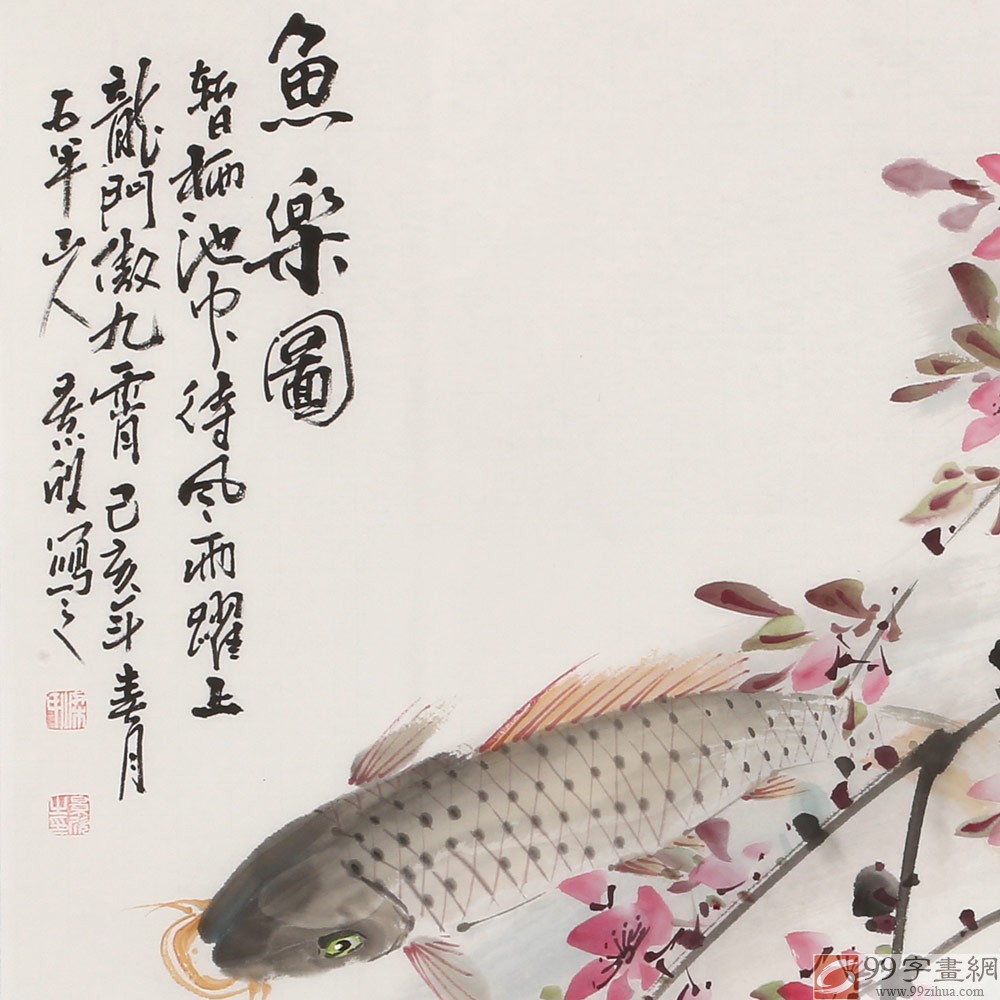 魚樂圖
暫栖池中待風雨躍上
龍門傲九霄己亥年春月
石羊山人景波寫之
99字畫網
www.99zihua.com